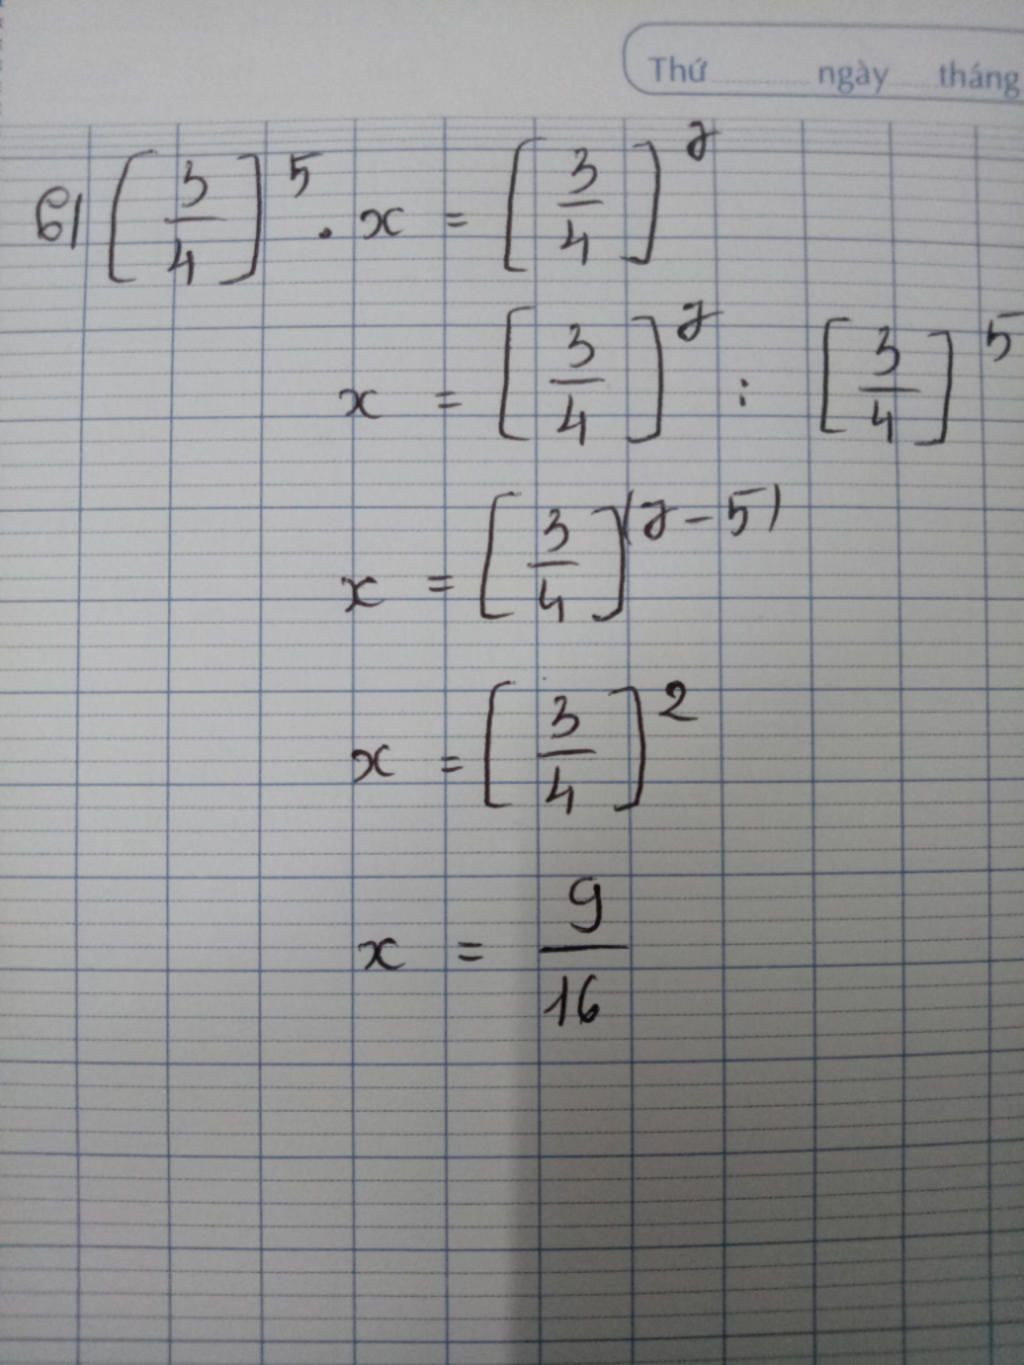 Thứ ngày tháng
61 [3/4]^5 . x = [3/4]^7
x = [3/4]^7 : [3/4]^5
x = [3/4]^(7-5)
x = [3/4]^2
x = 9/16